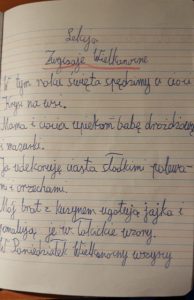 Lekcja
Zwyczaje Wielkanocne
W tym roku święta spędzimy u cioci
Krysi na wsi.
Mama i ciocia upiekom babę drożdżową
i mazurki.
Ja udekoruję ciasta słodkimi polewa-
mi i orzechami.
Mój brat z kuzynem ugotują jajka i
pomalują je w łowickie wzory.
W Poniedziałek Wielkanocny wszyscy